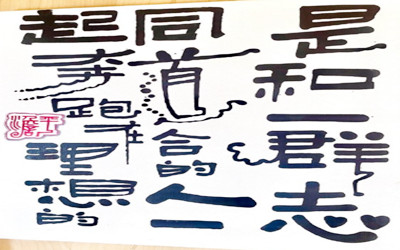 是和一群志
同道合的人一
起奔跑在理想的